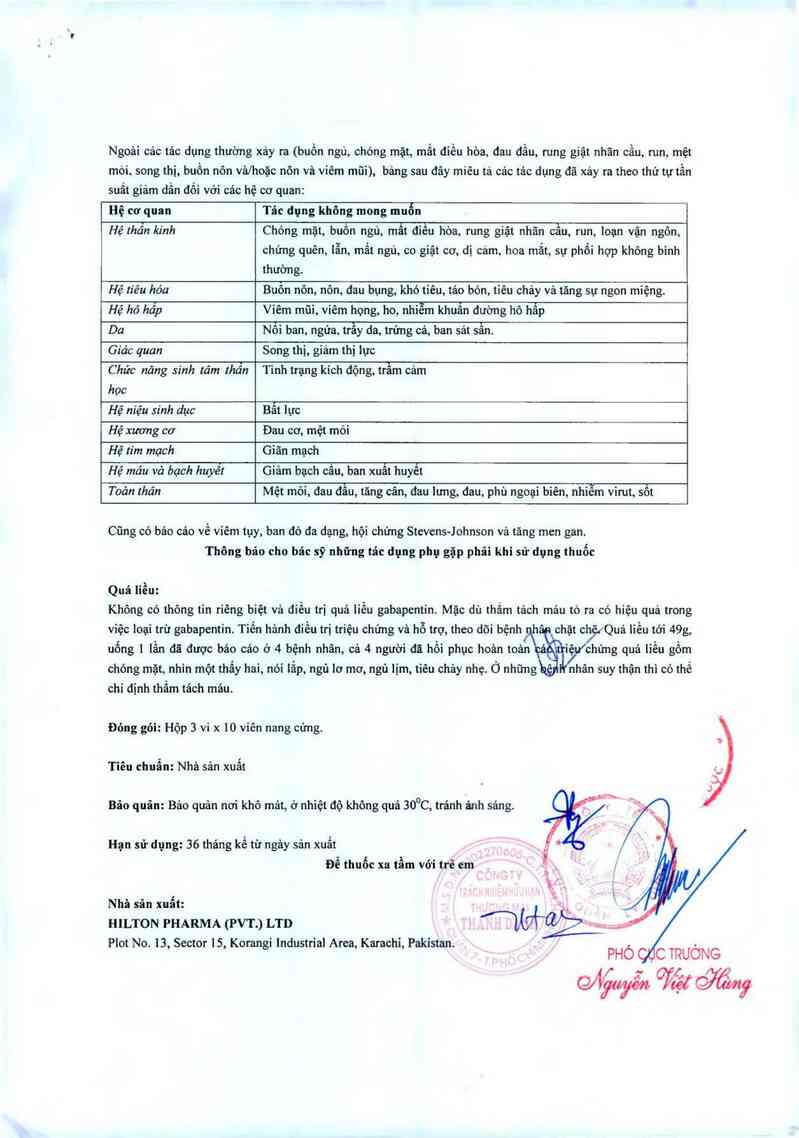 Ngoài các tác dụng thường xảy ra (buồn ngủ, chóng mặt, mất điều hòa, đau đầu, rung giật nhãn cầu, run, mệt
mỏi, song thị, buồn nôn và/hoặc nôn và viêm mũi), bảng sau đây miêu tả các tác dụng đã xảy ra theo thứ tự tần
suất giảm dần đối với các hệ cơ quan:
Hệ cơ quan Tác dụng không mong muốn
Hệ thần kinh Chóng mặt, buồn ngủ, mất điều hòa, rung giật nhãn cầu, run, loạn vận ngôn,
chứng quên, lẫn, mất ngủ, co giật cơ, dị cảm, hoa mắt, sự phối hợp không bình
thường.
Hệ tiêu hóa Buồn nôn, nôn, đau bụng, khó tiêu, táo bón, tiêu chảy và tăng sự ngon miệng.
Hệ hô hấp Viêm mũi, viêm họng, ho, nhiễm khuẩn đường hô hấp
Da Nổi ban, ngứa, trầy da, trứng cá, ban sát sần.
Giác quan Song thị, giảm thị lực
Chức năng sinh tâm thần Tình trạng kích động, trầm cảm
học
Hệ niệu sinh dục Bất lực
Hệ xương cơ Đau cơ, mệt mỏi
Hệ tim mạch Giãn mạch
Hệ máu và bạch huyết Giảm bạch cầu, ban xuất huyết
Toàn thân Mệt mỏi, đau đầu, tăng cân, đau lưng, đau, phù ngoại biên, nhiễm virut, sốt
Cũng có báo cáo về viêm tụy, ban đỏ đa dạng, hội chứng Stevens-Johnson và tăng men gan.
Thông báo cho bác sỹ những tác dụng phụ gặp phải khi sử dụng thuốc
Quá liều:
Không có thông tin riêng biệt về điều trị quá liều gabapentin. Mặc dù thẩm tách máu tỏ ra có hiệu quả trong
việc loại trừ gabapentin. Tiến hành điều trị triệu chứng và hỗ trợ, theo dõi bệnh nhân chặt chẽ. Quá liều tới 49g,
uống 1 lần đã được báo cáo ở 4 bệnh nhân, cả 4 người đã hồi phục hoàn toàn các triệu chứng quá liều gồm
chóng mặt, nhìn một thấy hai, nói lắp, ngủ lơ mơ, ngủ lịm, tiêu chảy nhẹ. Ở những bệnh nhân suy thận thì có thể
chỉ định thẩm tách máu.
Đóng gói: Hộp 3 vỉ x 10 viên nang cứng.
Tiêu chuẩn: Nhà sản xuất
Bảo quản: Bảo quản nơi khô mát, ở nhiệt độ không quá 30°C, tránh ánh sáng.
Hạn sử dụng: 36 tháng kể từ ngày sản xuất
Để thuốc xa tầm với trẻ em
CÔNG TY
TRÁCH NHIỆM HỮU HẠN
THƯƠNG MẠI
Nhà sản xuất:
HILTON PHARMA (PVT.) LTD
Plot No. 13, Sector 15, Korangi Industrial Area, Karachi, Pakistan.
PHÓ CỤC TRƯỞNG
Nguyễn Việt Hùng